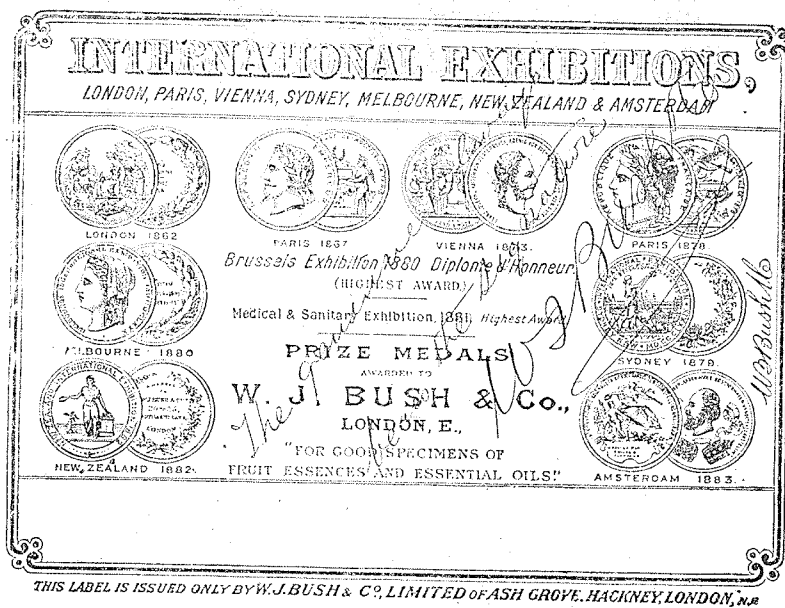 INTERNATIONAL EXHIBITIONS,
LONDON, PARIS, VIENNA, SYDNEY, MELBOURNE, NEW ZEALAND & AMSTERDAM
LONDON 1862
PARIS 1867
VIENNA 1873.
PARIS 1878.
Brussels Exhibition 1880 Diplome d'Honneur
(HIGHEST AWARD.)
Medical & Sanitary Exhibition, 1881, Highest Award
MELBOURNE 1880
SYDNEY 1879.
PRIZE MEDALS
AWARDED TO
W. J. BUSH & Co.,
LONDON, E.,
"FOR GOOD SPECIMENS OF
FRUIT ESSENCES AND ESSENTIAL OILS."
NEW ZEALAND 1882.
AMSTERDAM 1883.
The genuine
bear the
W J Bush & Co
W J Bush & Co
THIS LABEL IS ISSUED ONLY BY W. J. BUSH & Co, LIMITED OF ASH GROVE. HACKNEY, LONDON, N.E